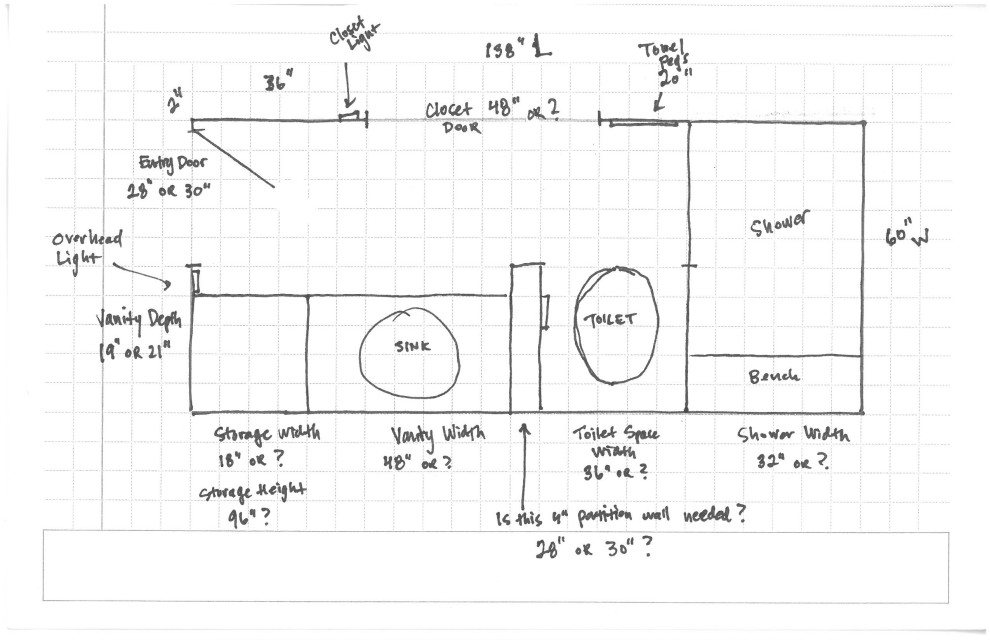 Closet
Light
138" L
Towel
Pegs
20"
36"
2"
Closet 48" OR ?
DOOR
Entry Door
28" OR 30"
Shower
60"
W
Overhead
Light
Vanity Depth
19" OR 21"
SINK
TOILET
Bench
Storage Width
18" OR ?
Vanity Width
48" OR ?
Toilet Space
Width
36" OR ?
Shower Width
32" OR ?
Storage Height
96" ?
Is this 4" partition wall needed?
28" OR 30" ?